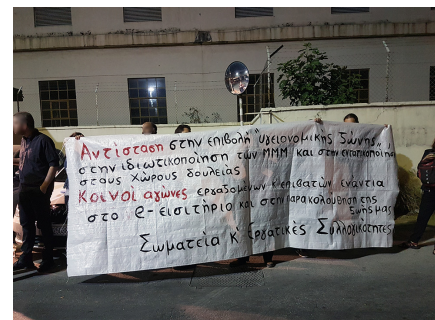 Αντίσταση στην επιβολή "υγειονομικής ζώνης"
στην ιδιωτικοποίηση των ΜΜΜ και στην εντατικοποίηση
στους χώρους δουλειάς
Κοινοί αγώνες εργαζομένων κ επιβατών ενάντια
στο e-εισιτήριο και στη παρακολούθηση της
ζωής μας
Σωματεία κ' Εργατικές Συλλογικότητες